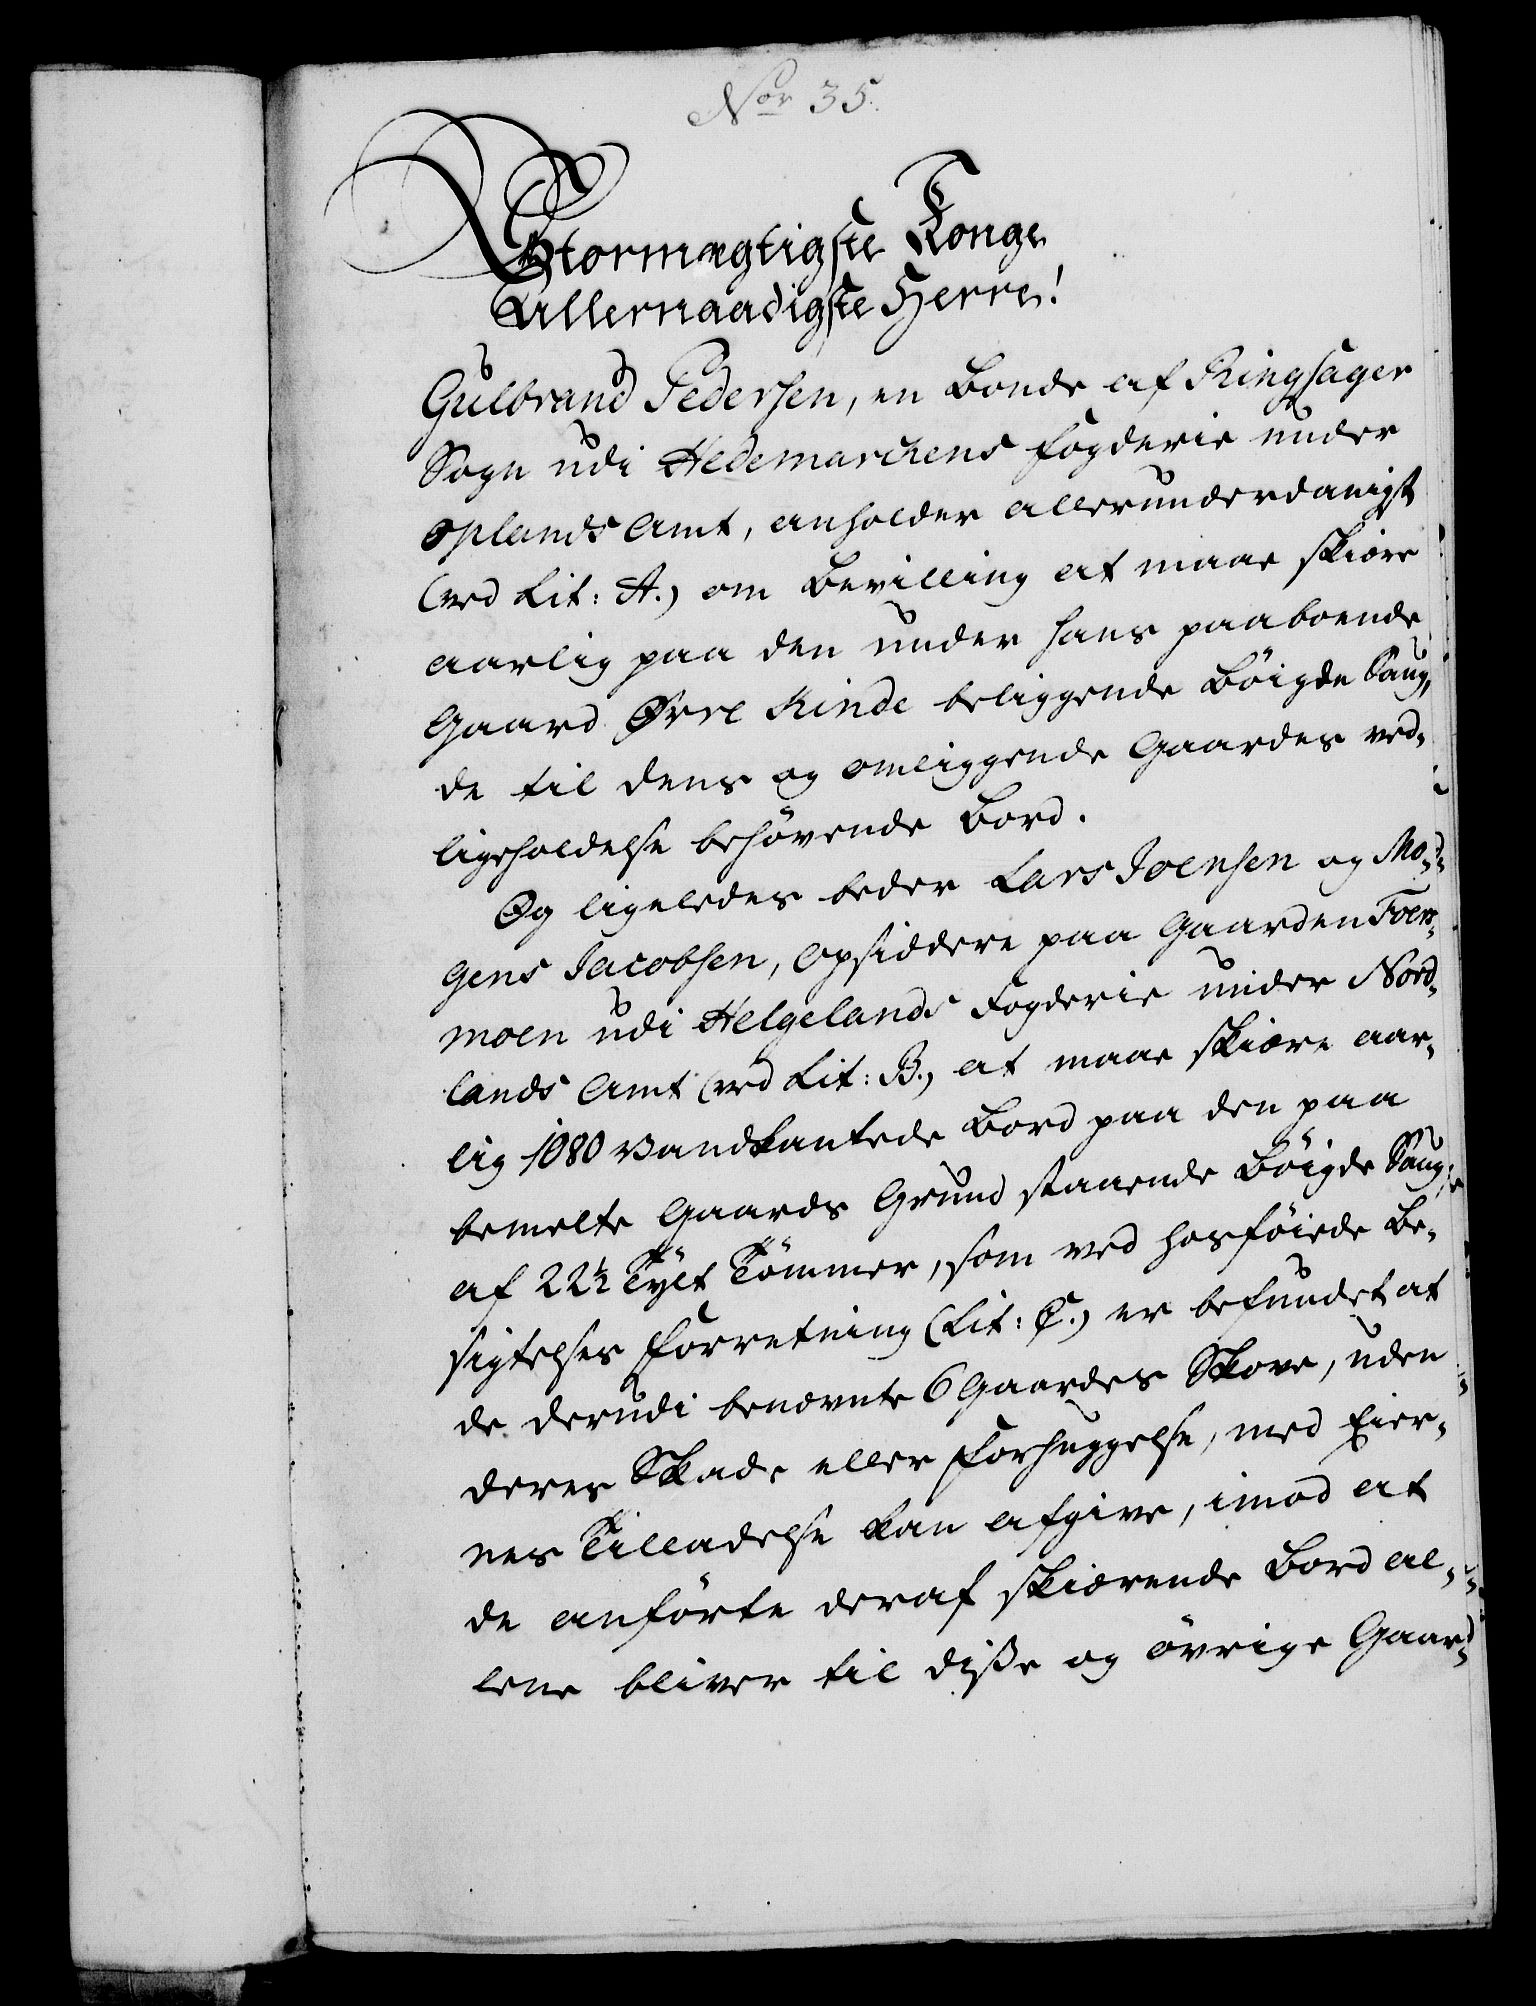 Nor 35.
Stormægtigste Konge
Allernaadigste Herre!
Gulbrand Pedersen, en Bonde af Ringsager
Sogn udi Hedemarckens Fogderie under
Oplands Amt, anholder allerunderdanigst
(ved Lit: A.) om Bevilling at maae skiære
aarlig paa den under hans paaboende
Gaard Øvre Rinde beliggende Bøigde Saug,
de til dens og omliggende Gaardes ved,
ligeholdelse behøvende Bord.
Og ligeledes beder Lars Joensen og Mo,
gens Jacobsen, Opsiddere paa Gaarden Foers,
moen udi Helgelands Fogderie under Nord,
lands Amt (ved Lit: B.) at maae skiære aar,
lig 1080 Vandkantede Bord paa den paa
bemelte Gaards Grund staaende Bøigde Saug,
af 22½ Tylt Tømmer, som ved hosføiede Be,
sigtelses Forretning (Lit: C.) er befundet at
de derudi benævnte 6 Gaardes Skove, uden
deres Skade eller Forhuggelse, med Eier,
nes Tilladelse kan afgive, imod at
de anførte deraf skiærende Bord al,
lene bliver til diße og øvrige Gaar,